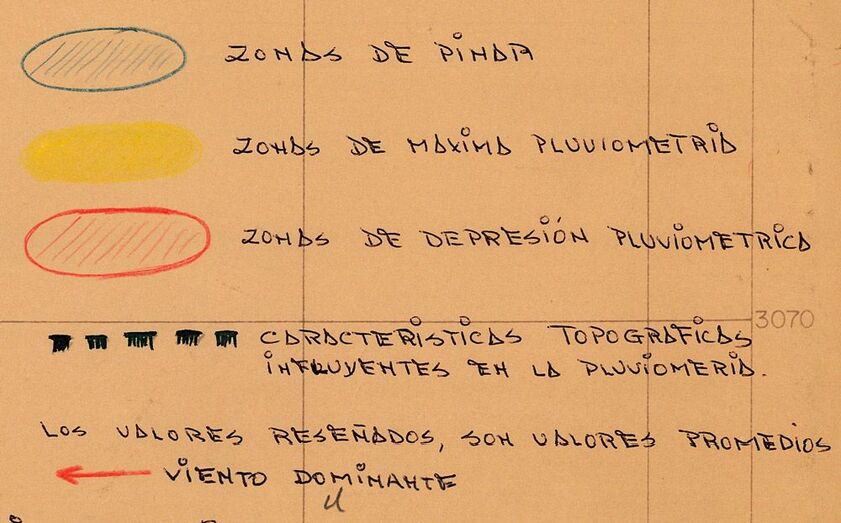 ZONAS DE PINAR
ZONAS DE MAXIMA PLUVIOMETRIA
ZONAS DE DEPRESIÓN PLUVIOMETRICA
3070
CARACTERISTICAS TOPOGRAFICAS
INFLUYENTES EN LA PLUVIOMERIA.
LOS VALORES RESEÑADOS, SON VALORES PROMEDIOS
VIENTO DOMINANTE